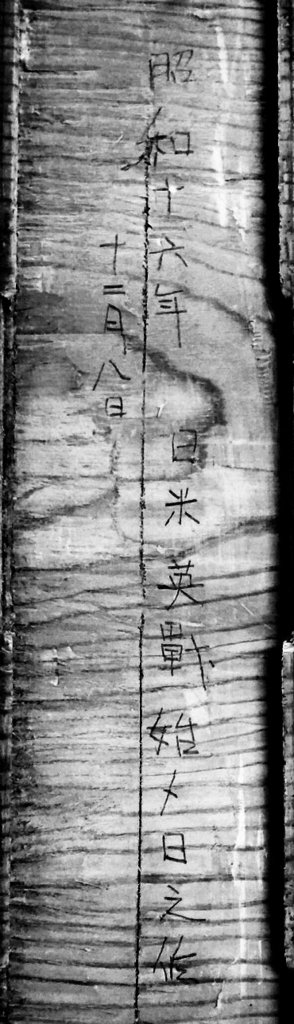 昭和十六年 日米英戰始メ日之
十二月八日